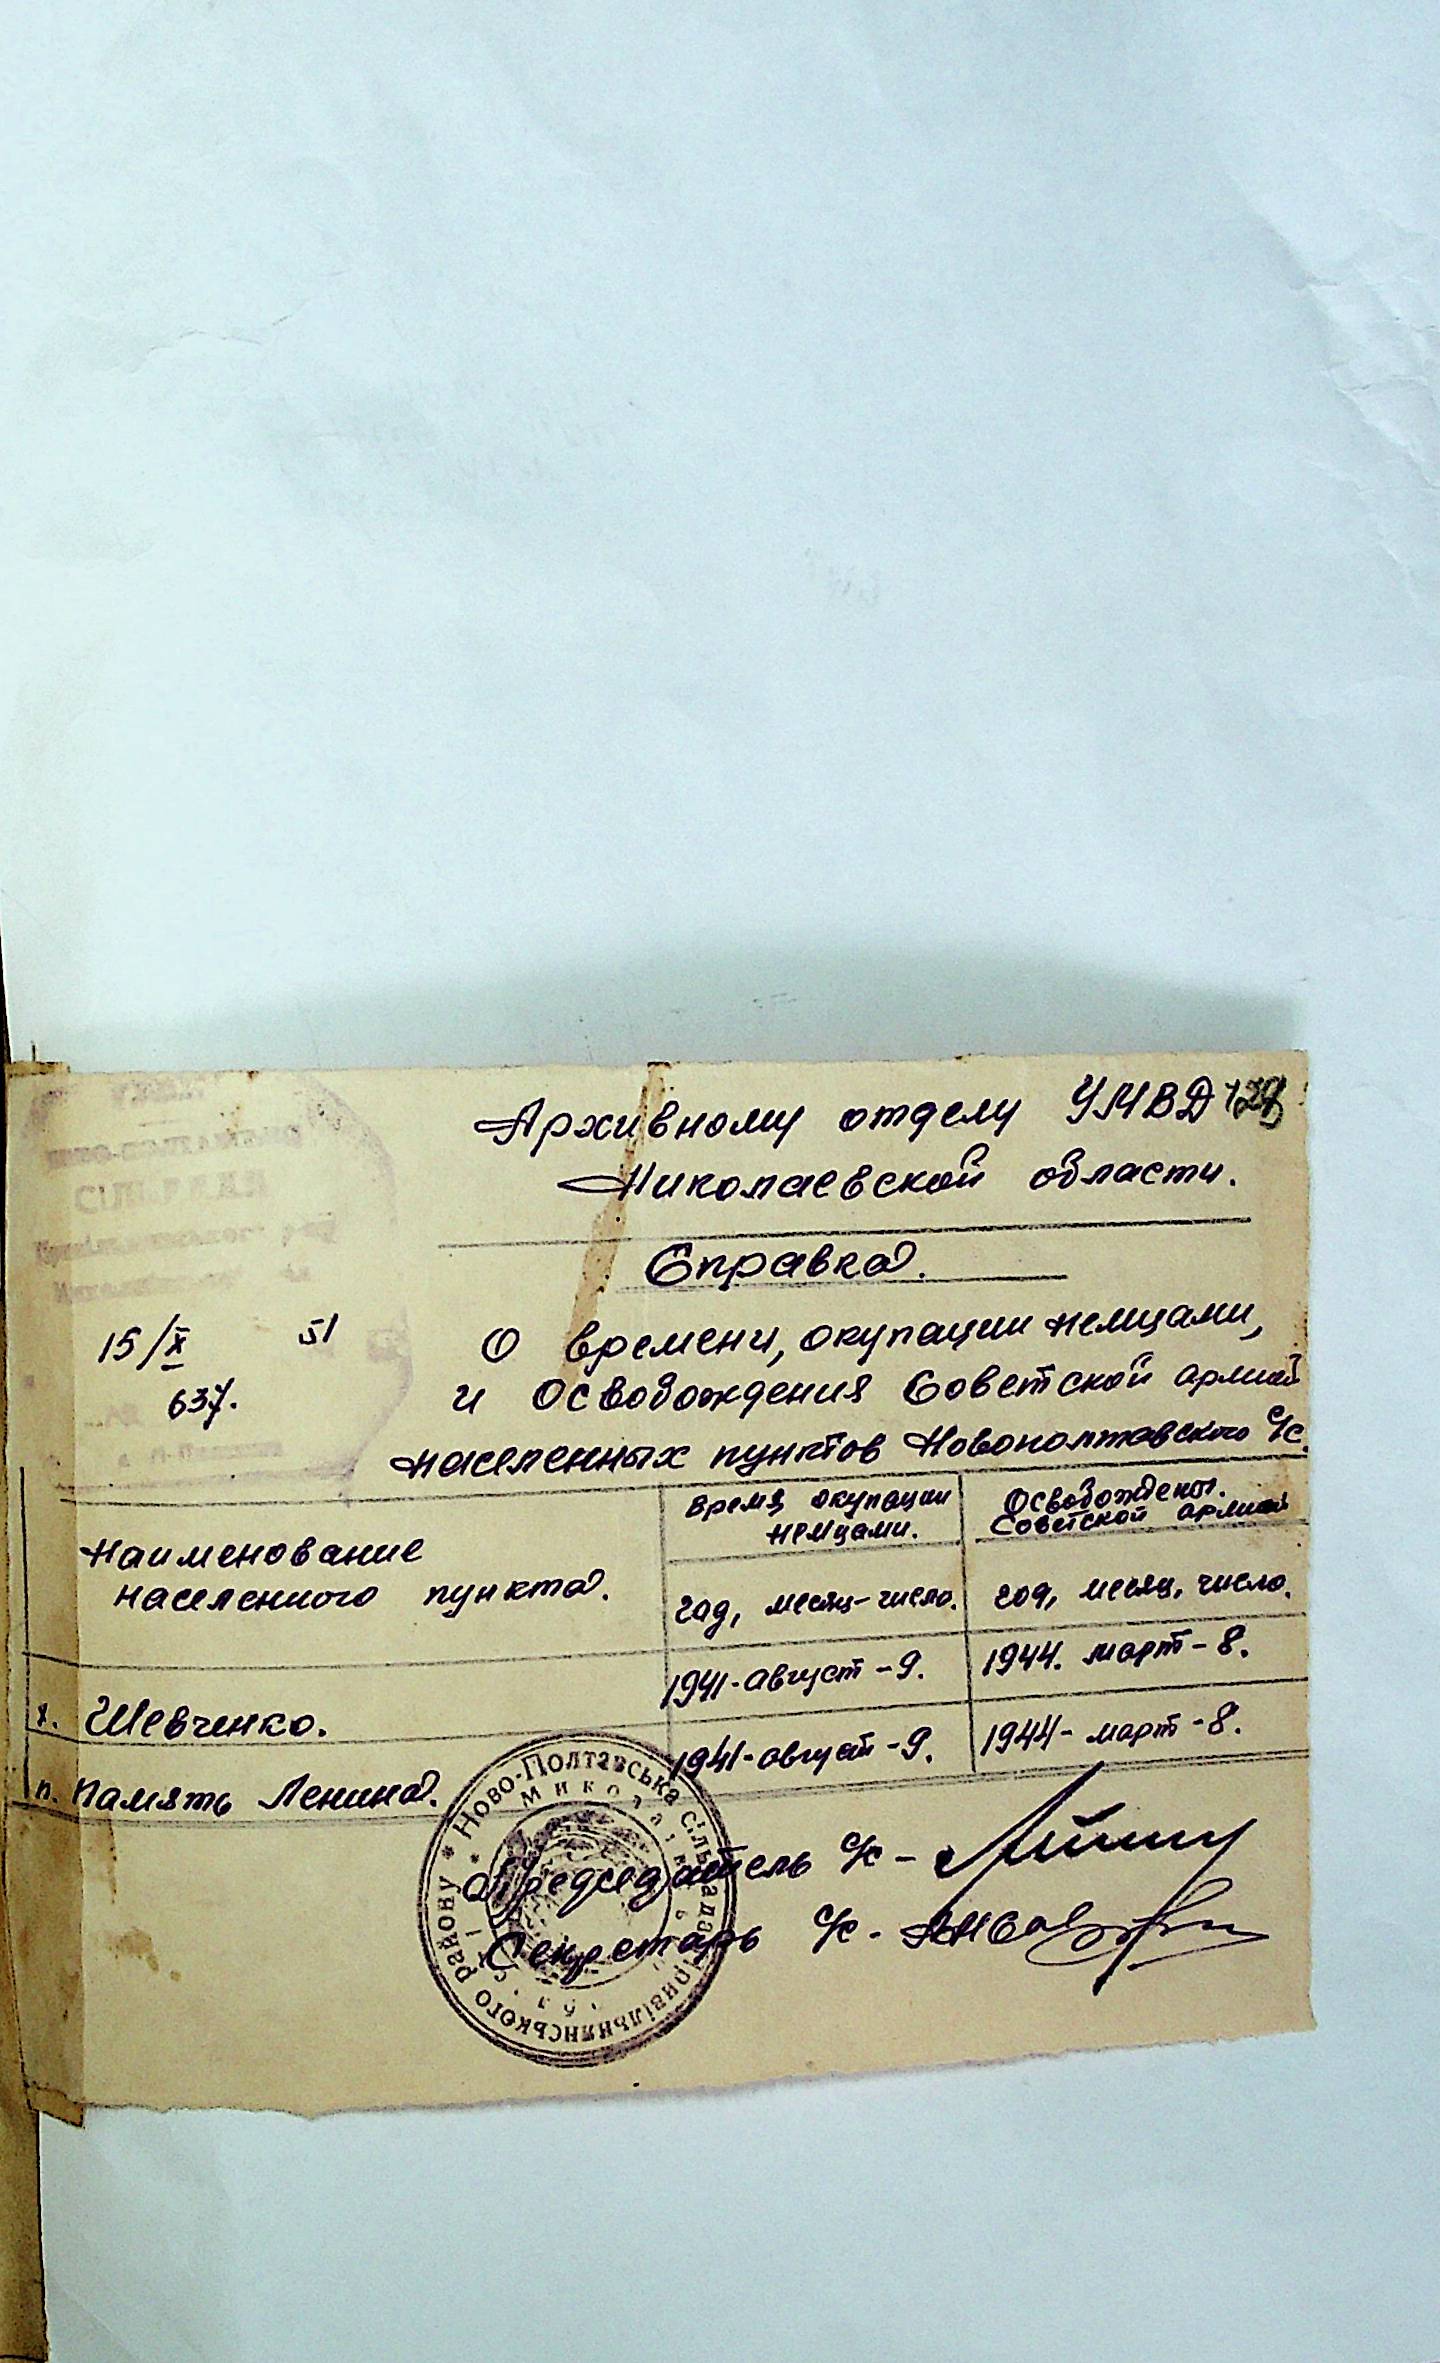 Архивному отделу УМВД
Николаевской области.
Справка.
15/X 51
637.
О времени, окупации немцами,
и Освобождения Советской армией
населенных пунктов Новополтавского с/с.
СІЛЬРАДА
Наименование
населенного пункта.
время окупации
немцами.
Освобождены.
Советской армией
год, месяц-число.
год, месяц, число.
х. Шевченко.
1941-август-9.
1944. март-8.
п. Память Ленина.
1941-август-9.
1944-март-8.
Председатель с/с -
Секретарь с/с -
* Ново-Полтавська сільрада Привільнянського району *
Миколаївської обл.